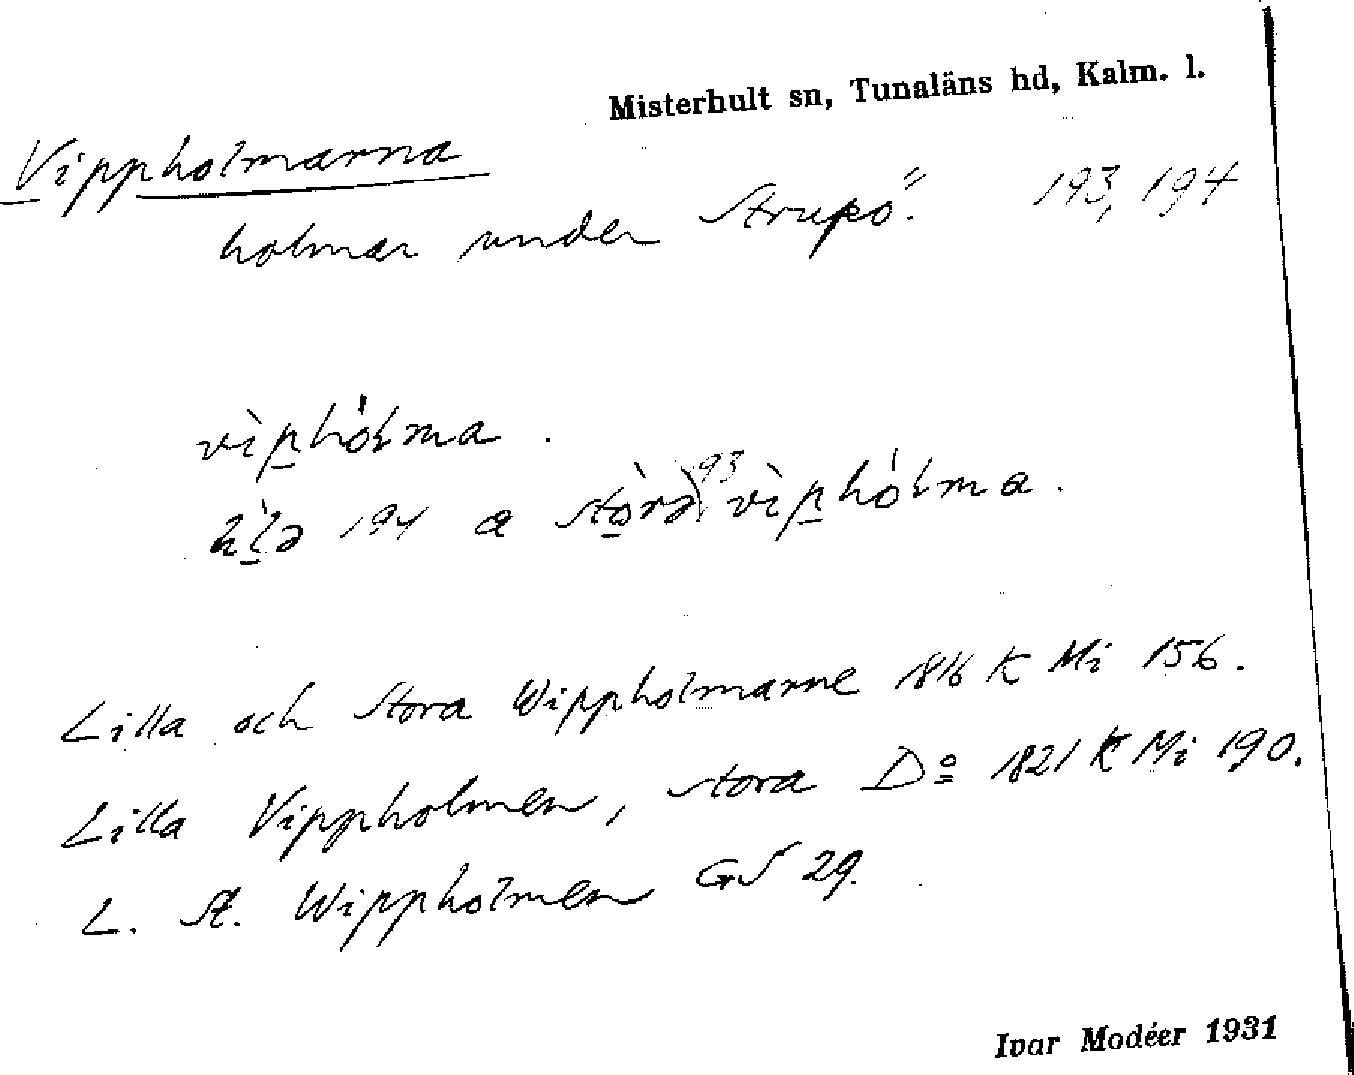 Misterhult sn, Tunaläns hd, Kalm. l.
Vippholmarna
holmar under Strupö. 193, 194
vìphólma.
194 a stòrə 93 vìphólma.
Lilla och Stora Wippholmarne 1816 K Mi 156.
Lilla Vippholmen, stora Do 1821 K Mi 190.
L. St. Wippholmen GS 29.
Ivar Modéer 1931